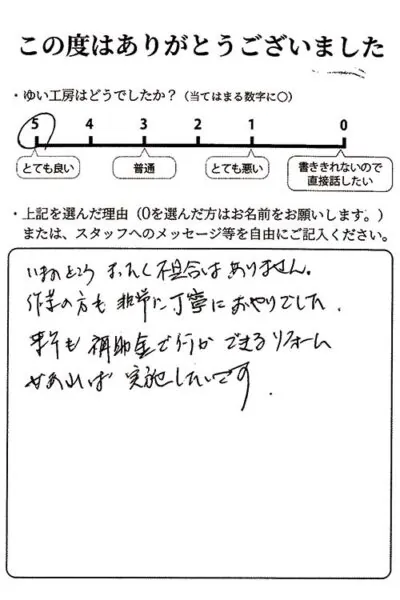 この度はありがとうございました
・ゆい工房はどうでしたか？（当てはまる数字に○）
5 4 3 2 1 0
とても良い 普通 とても悪い 書ききれないので直接話したい
・上記を選んだ理由（0を選んだ方はお名前をお願いします。）
または、スタッフへのメッセージ等を自由にご記入ください。
いまのところ まったく不具合はありません。
作業の方も 非常に丁寧におやりでした.
来年も 補助金で何か できるリフォーム
があれば 実施したいです.